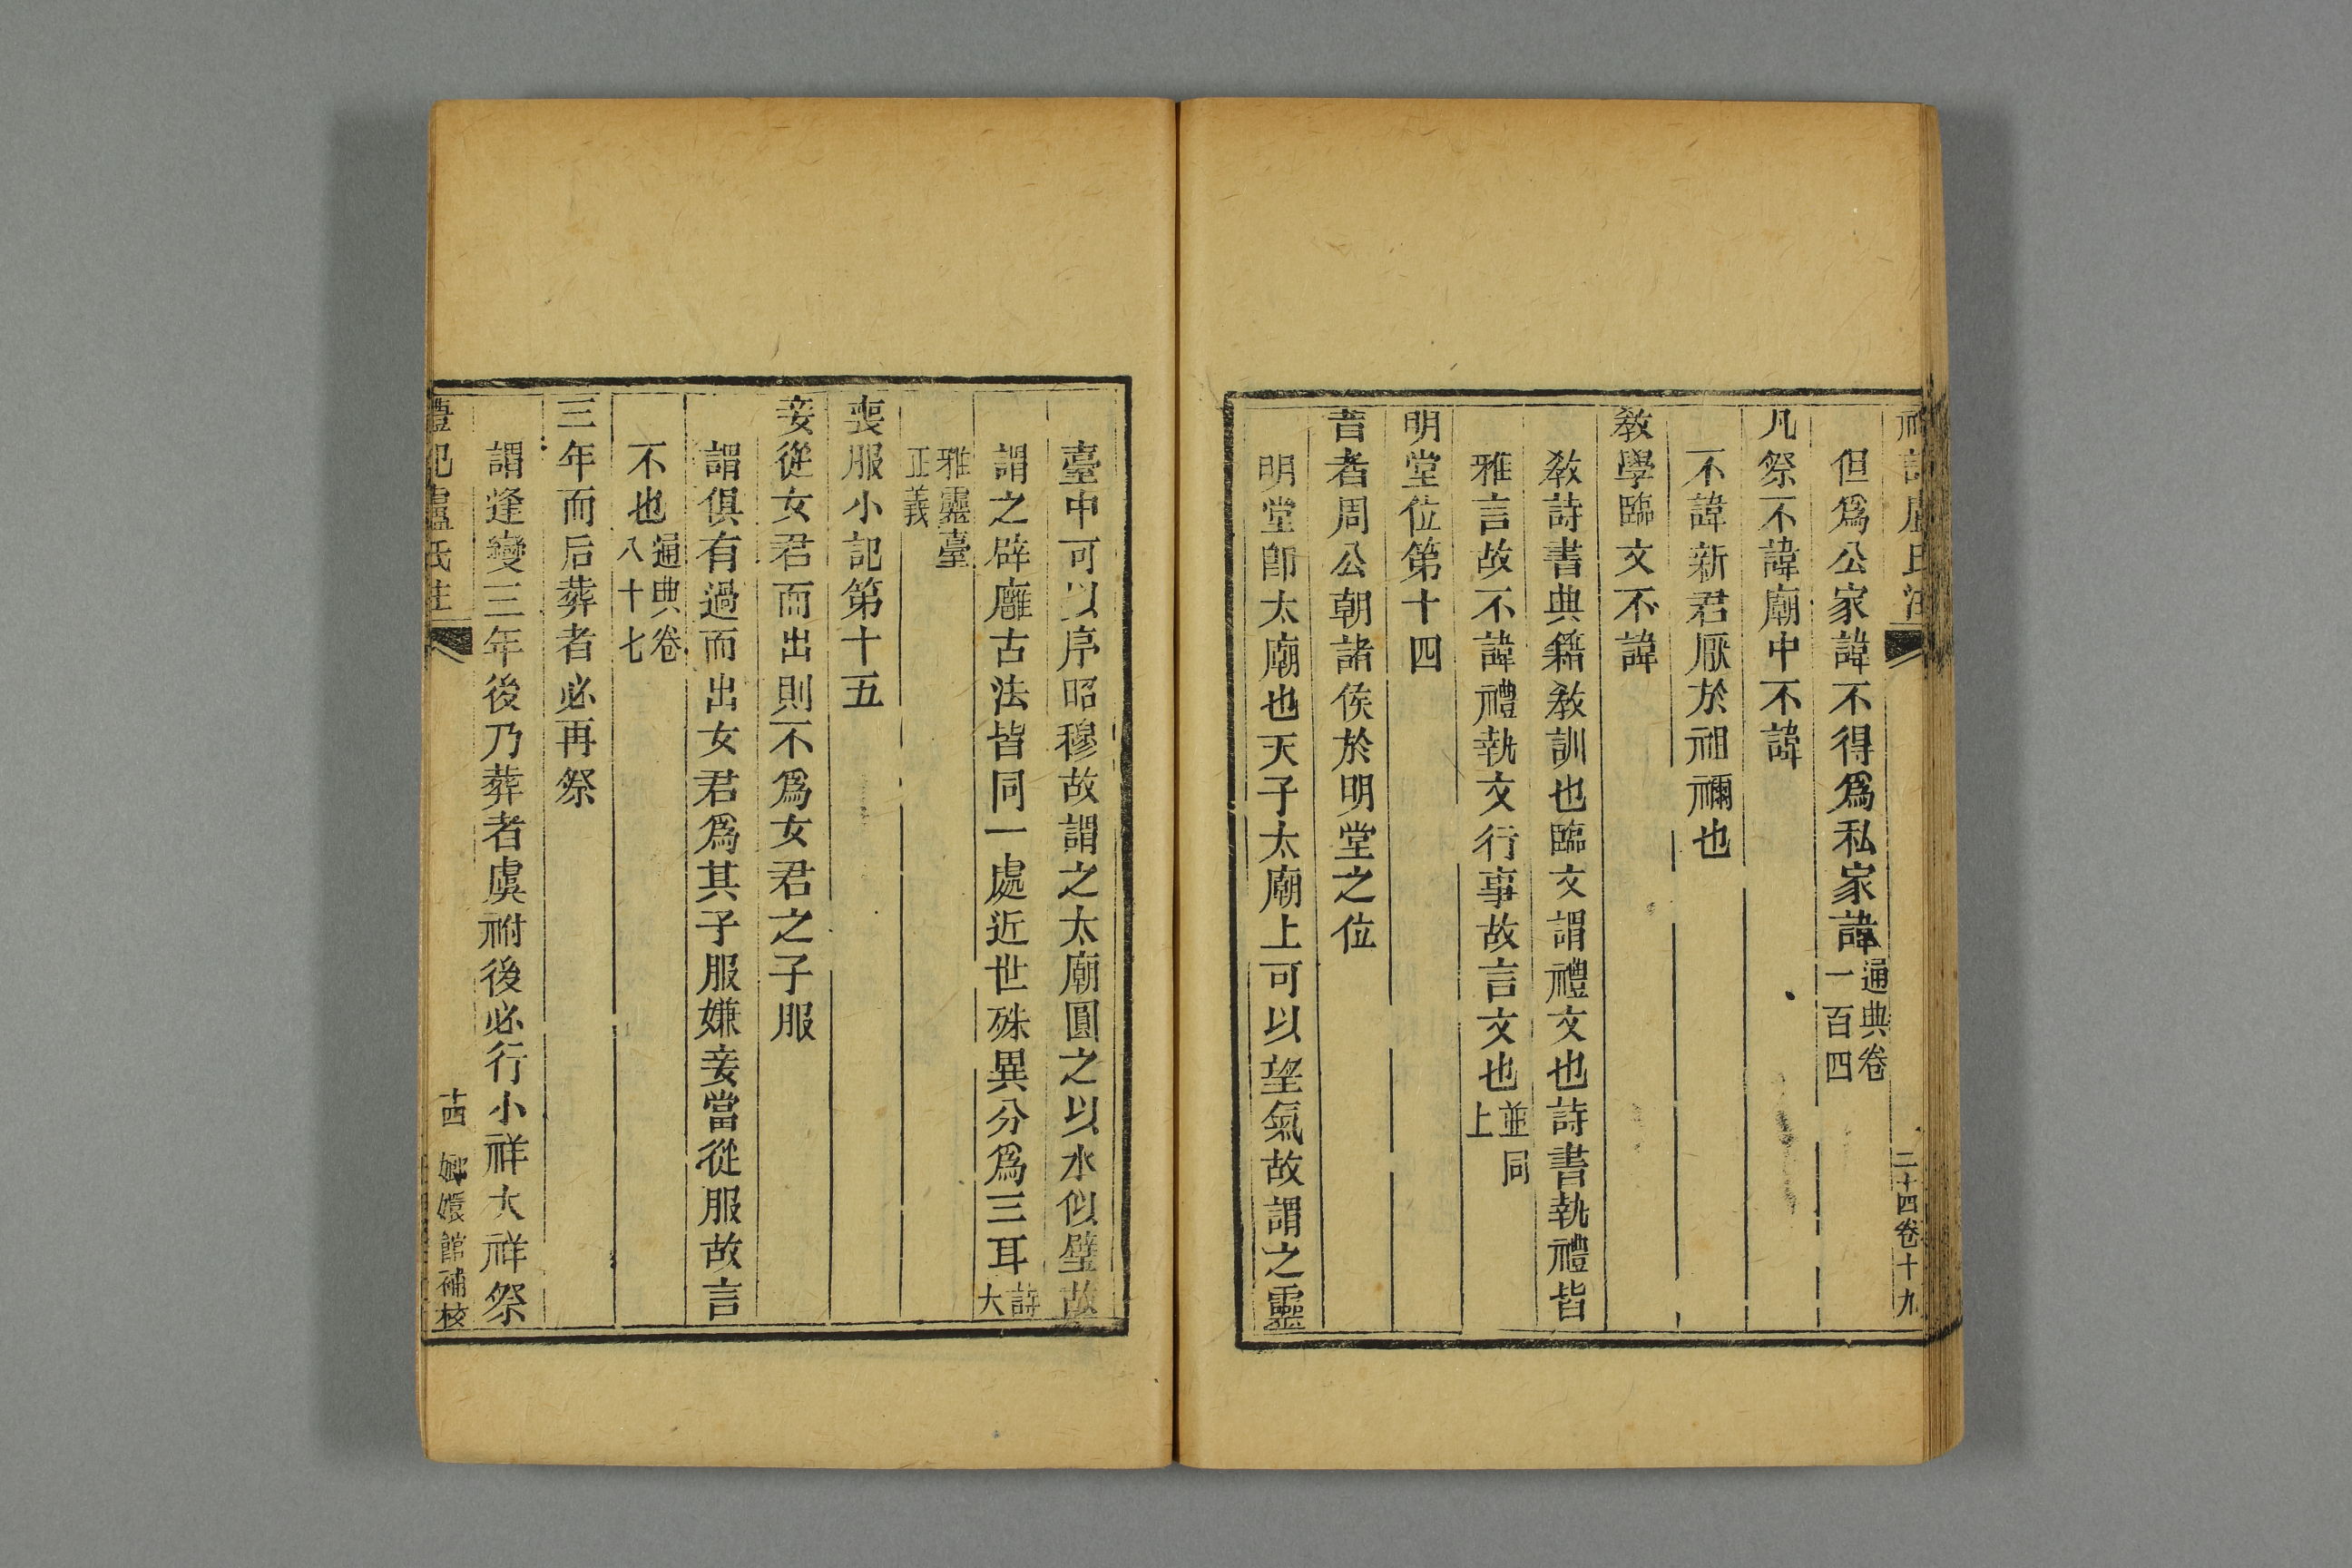 二十四卷十九
但爲公家諱不得爲私家諱通典卷一百四
凡祭不諱廟中不諱
不諱新君厭於祖禰也
敎學臨文不諱
敎詩書典籍敎訓也臨文謂禮文也詩書執禮皆
雅言故不諱禮執文行事故言文也並同上
明堂位第十四
昔者周公朝諸侯於明堂之位
明堂卽太廟也天子太廟上可以望氣故謂之靈
臺中可以序昭穆故謂之太廟圓之以水似璧故
謂之辟廱古法皆同一處近世殊異分爲三耳詩大
雅靈臺正義
喪服小記第十五
妾從女君而出則不爲女君之子服
謂俱有過而出女君爲其子服嫌妾當從服故言
不也通典卷八十七
三年而后葬者必再祭
謂逢變三年後乃葬者虞祔後必行小祥大祥祭
禮記盧氏注
十四
嫏嬛館補校